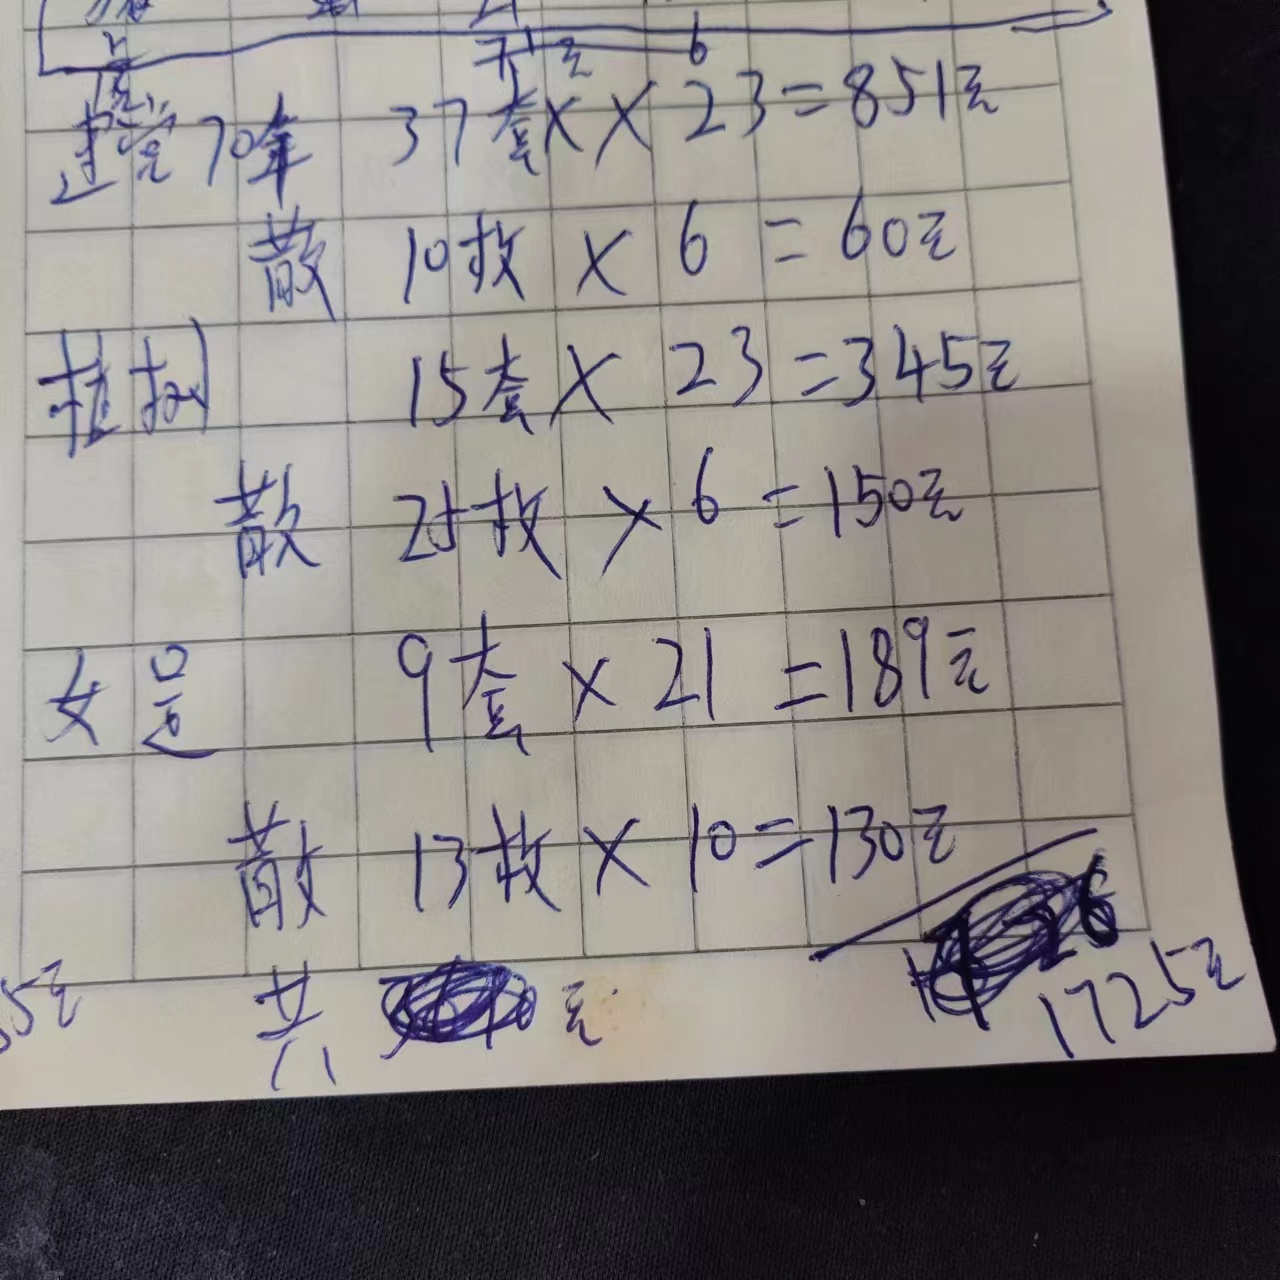 6
建党70年 37套 × × 23=851元
散 10枚 × 6 = 60元
植树 15套 × 23=345元
散 25枚 × 6 =150元
女足 9套 × 21 =189元
散 13枚 × 10=130元
5元 共 元 1725元